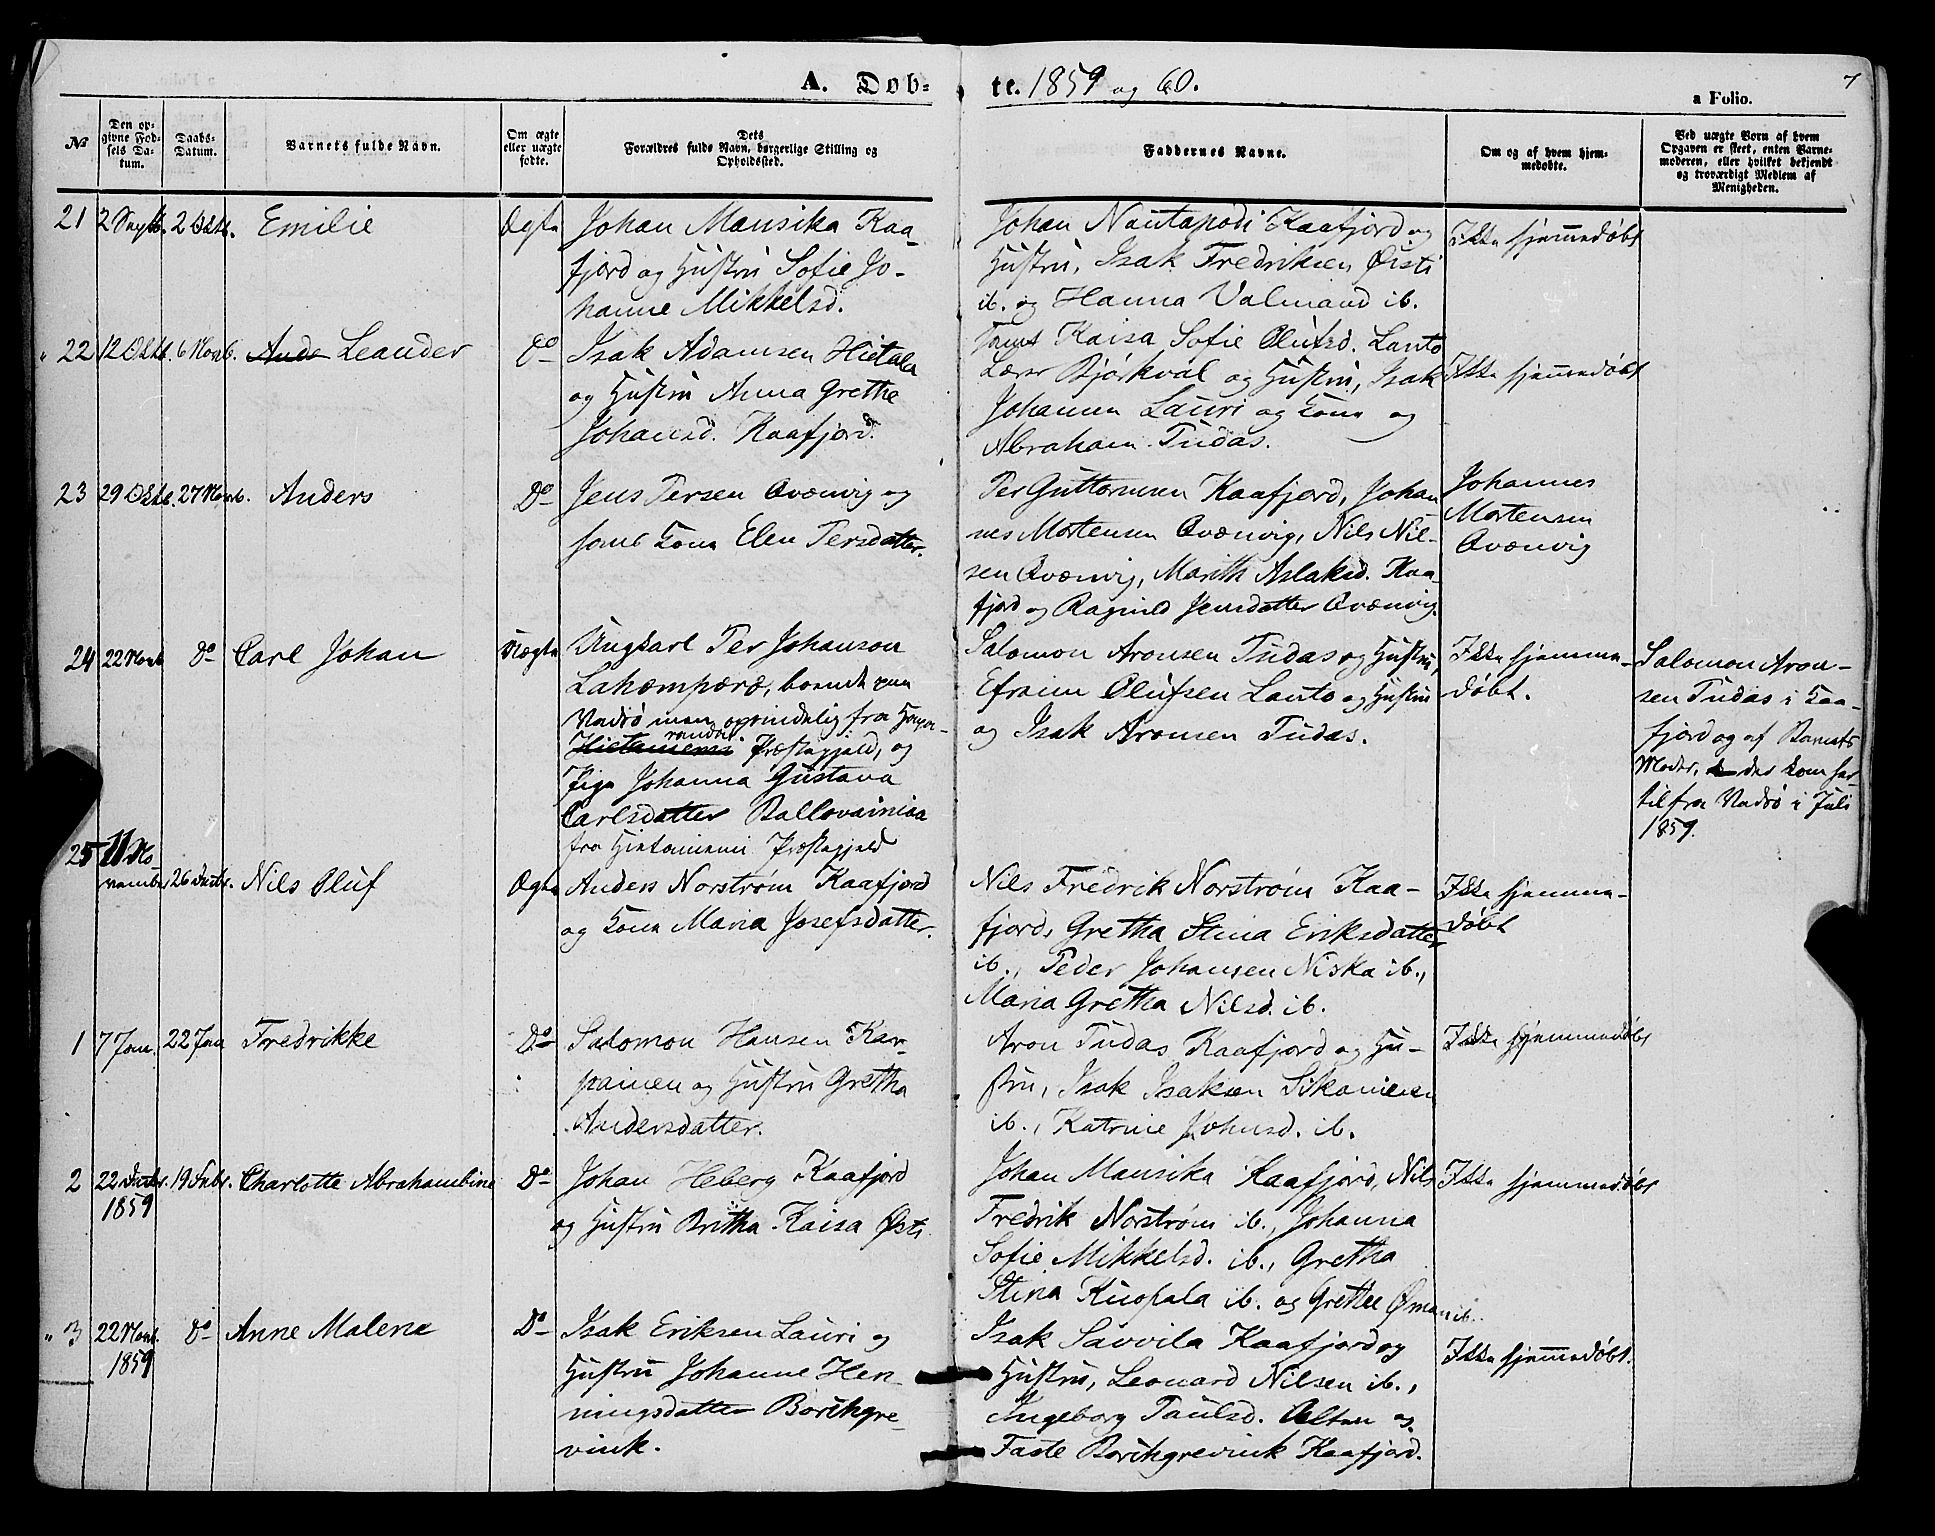 A. Døb-
te. 1859 og 60.
7
a Folio.
№
Den op-
givne Fød-
sels Da-
tum.
Daabs-
Datum.
Barnets fulde Navn.
Om ægte
eller uægte
fødte.
Dets
Forældres fulde Navn, borgerlige Stilling og
Opholdssted.
Faddernes Navne.
Om og af hvem hjem-
medøbte.
Ved uægte Børn af hvem
Opgaven er skeet, enten Barne-
moderen, eller hvilket bekjendt
og troværdigt Medlem af
Menigheden.
21 2 Septb. 2 Oktb. Emilie Ægte
Johan Mansika Kaa-
fjord og Hustru Sofie Jo-
hanne Mikkelsd.
Johan Nautapodi Kaafjord og
Hustru, Isak Fredriksen Østi
ib. og Hanna Valmand ib.
Ikke hjemmedøbt
22 12 Oktb. 6 Novb. Ande Leander Do
Isak Adamsen Hietala
og Hustru Anna Grethe
Johansd. Kaafjord.
samt Kaisa Sofie Olufsd. Lanto
Lærer Bjørkval og Hustru, Isak
Johannen Lauri og Kone og
Abraham Tudas.
Ikke hjemmedøbt
23 29 Oktb. 27 Novb. Anders Do
Jens Persen Qvænvig og
Kone Elen Persdatter.
Per Guttormsen Kaafjord, Johan-
nes Mortensen Qvænvig, Nils Nil-
sen Qvænvig, Marith Aslaksd. Kaa-
fjord og Ragnild Jensdatter Qvænvig.
Johannes
Mortensen
Qvænvig
24 22 Novb. Do Carl Johan Uægte
Ungkarl Per Johanson
Lahæmpæræ, boende paa
Vadsø men oprindelig fra Hapa-
randa
Hietaniemi Præstegjeld, og
Pige Johanna Gustava
Carlsdatter Pallovainiaa
fra Hietaniemi Præstegjeld
Salomon Aronsen Tudas og Hustru,
Efraim Olufsen Lanto og Hustru
og Isak Aronsen Tudas.
Ikke hjemme-
døbt.
Salomon Aron-
sen Tudas i Kaa-
fjord og af Barnets
Moder, der kom her-
til fra Vadsø i Juli
1859.
25 11 No-
vember 26 Decbr. Nils Oluf Ægte
Anders Norstrøm Kaafjord
og Kone Maria Josefsdatter.
Nils Fredrik Norstrøm Kaa-
fjord, Gretha Stina Eriksdatter
ib., Peder Johansen Niska ib.,
Maria Gretha Nilsd. ib.
Ikke hjemme-
døbt
1 7 Jan. 22 Jan Fredrikke Do
Salomon Hansen Kar-
painen og Hustru Gretha
Andersdatter.
Aron Tudas Kaafjord og Hu-
stru, Isak Isaksen Sikanienen
ib., Katrine Johnsd. ib.
Ikke hjemmedøbt
2 22 Decbr. 19 Febr. Charlotte Abrahambine Do
1859
Johan Heberg Kaafjord
og Hustru Britha Kaisa Østi
Johan Mansika Kaafjord, Nils
Fredrik Norstrøm ib., Johanna
Sofie Mikkelsd. ib., Gretha
Stina Kuopala ib. og Grethe Øman ib.
Ikke hjemmedøbt
3 22 Novb. Do Anne Malene Do
1859
Isak Eriksen Lauri og
Hustru Johanne Hen-
ningsdatter Borchgre-
vink.
Isak Savvila Kaafjord og
Hustru, Leonard Nilsen ib.,
Ingeborg Paulsd. Alten og
Faste Borchgrevink Kaafjord.
Ikke hjemmedøbt.